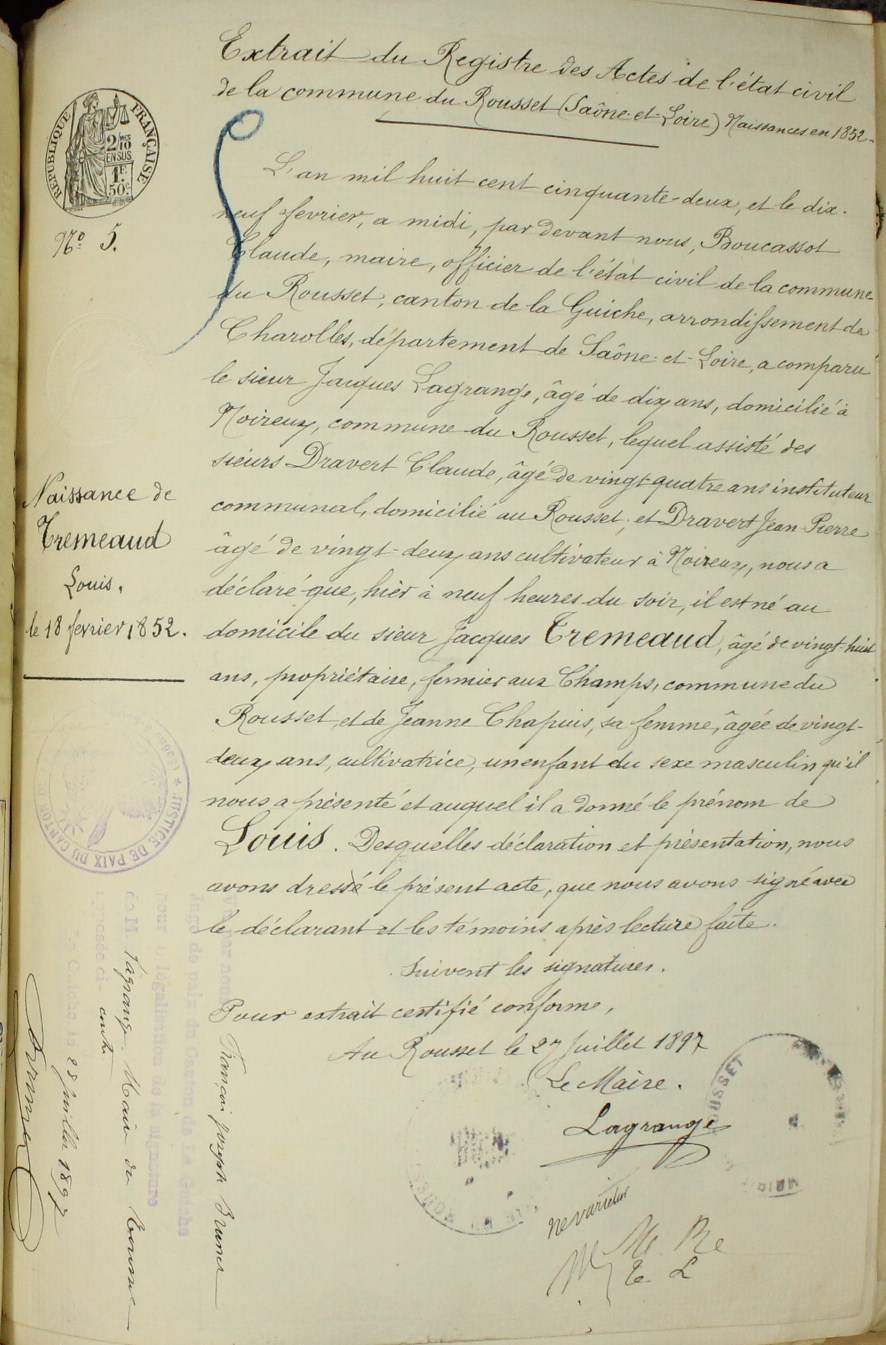 Extrait du Registre des Actes de l'état civil
de la commune du Rousset (Saône-et-Loire) Naissances en 1852.
RÉPUBLIQUE FRANÇAISE
2/10 EN SUS
1F 50c
N° 5.
L'an mil huit cent cinquante-deux, et le dix-
neuf fevrier, a midi, par devant nous, Boucassot
Claude, maire, officier de l'état civil de la commune
du Rousset, canton de la Guiche, arrondissement de
Charolles, département de Saône-et-Loire, a comparu
le sieur Jacques Lagrange, âgé de dix ans, domicilié à
Noireux, commune du Rousset, lequel assisté des
sieurs Dravert Claude, âgé de vingt-quatre ans instituteur
communal, domicilié au Rousset, et Dravert Jean-Pierre
âgé de vingt-deux ans cultivateur à Noireux, nous a
déclaré que, hier à neuf heures du soir, il est né au
domicile du sieur Jacques Tremeaud, âgé de vingt-huit
ans, propriétaire, fermier aux Champs, commune du
Rousset, et de Jeanne Chapuis, sa femme, âgée de vingt-
deux ans, cultivatrice, un enfant du sexe masculin qu'il
nous a présenté et auquel il a donné le prénom de
Louis. Desquelles déclaration et présentation, nous
avons dressé le présent acte, que nous avons signé avec
le déclarant et les témoins après lecture faite.
Suivent les signatures.
Pour extrait certifié conforme,
Au Rousset le 27 Juillet 1897
Le Maire.
Lagrange
Ne varietur
Naissance de
Tremeaud
Louis.
le 18 fevrier 1852.
JUSTICE DE PAIX DU CANTON DE
par nous François Joseph
Juge de paix du Canton de La Guiche
pour légalisation de la signature
de M Lagrange Maire du Rousset
apposée ci contre
La Guiche le 28 Juillet 1897
ROUSSET